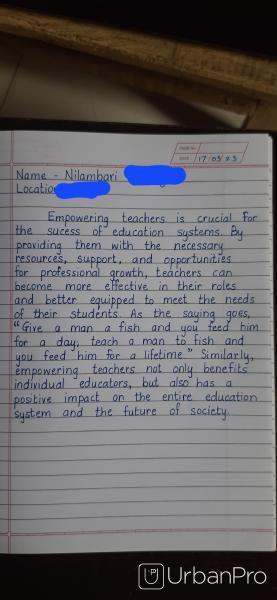 PAGE No.
DATE 17/03/23
Name - Nilambari
Locatio
Empowering teachers is crucial for
the sucess of education systems. By
providing them with the necessary
resources, support, and opportunities
for professional growth, teachers can
become more effective in their roles
and better equipped to meet the needs
of their students. As the saying goes,
"Give a man a fish and you feed him
for a day; teach a man to fish and
you feed him for a lifetime." Similarly,
empowering teachers not only benefits
individual educators, but also has a
positive impact on the entire education
system and the future of society.
UrbanPro